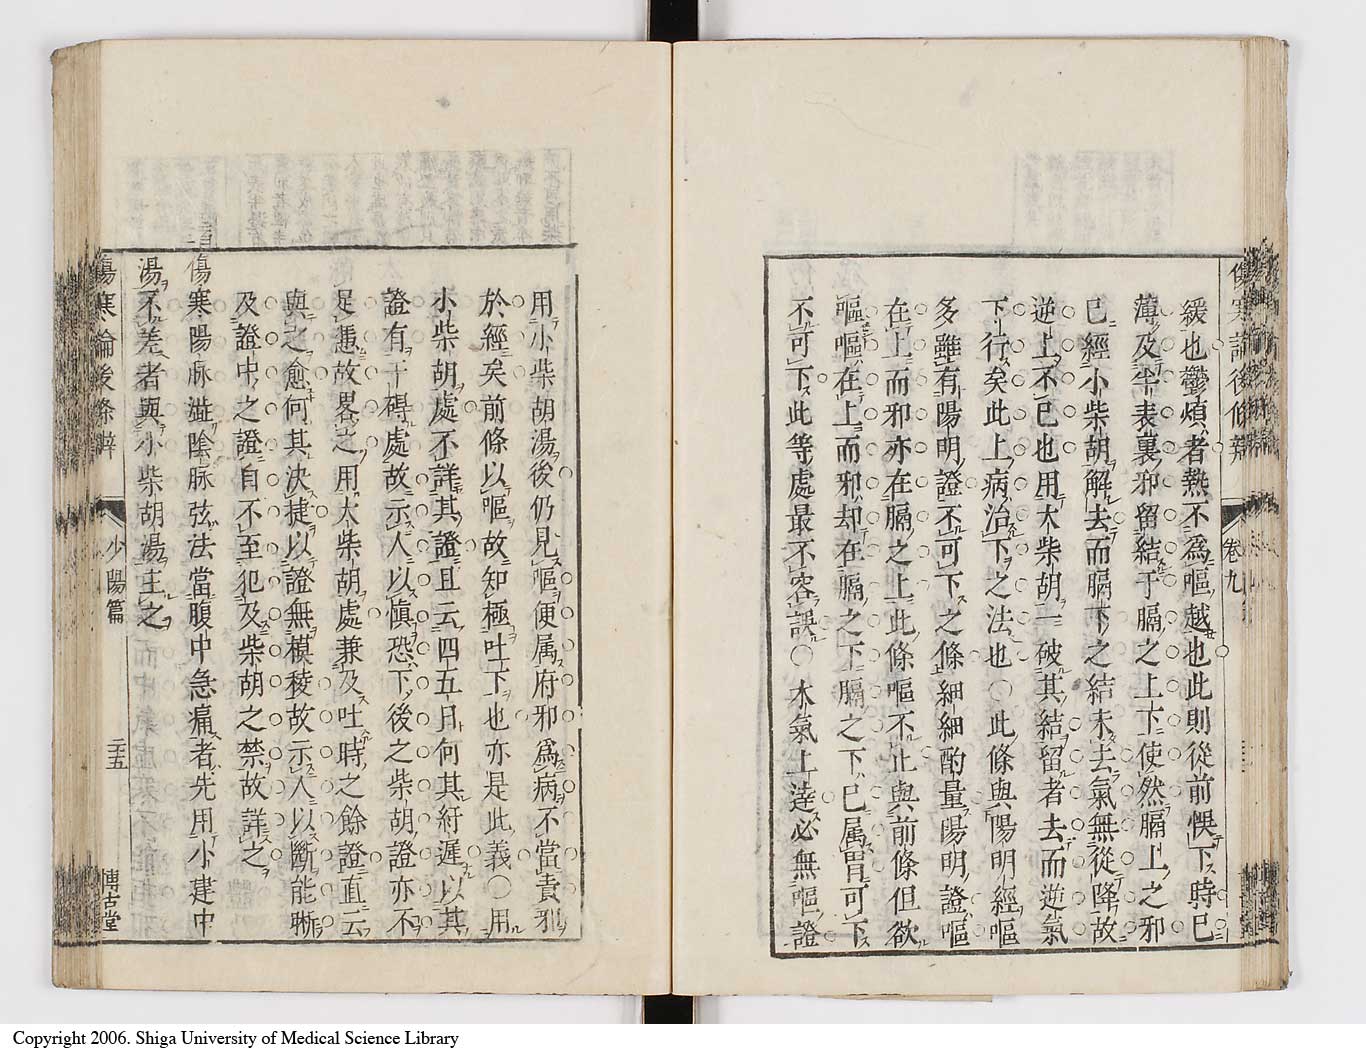 傷寒論後條辨 卷九
緩也鬱煩者熱不爲嘔越也此則從前悞下時已
薄及半表裏邪留結于膈之上下使然膈上之邪
已經小柴胡解去而膈下之結未去氣無從降故
逆上不已也用大柴胡一破其結留者去而逆氣
下行矣此上病治下之法也○此條與陽明經嘔
多雖有陽明證不可下之條細細酌量陽明證嘔
在上而邪亦在膈之上此條嘔不止與前條但欲
嘔嘔在上而邪却在膈之下膈之下已属胃可下
不可下此等處最不容誤○木氣上逹必無嘔證
用小柴胡湯後仍見嘔便属府邪爲病不當責邪
於經矣前條以嘔故知極吐下也亦是此義○用
小柴胡處不詳其證且云四五日何其紆遲以其
證有干碍處故示人以愼恐下後之柴胡證亦不
足憑故畧之用大柴胡處兼及吐時之餘證直云
與之愈何其決捷以證無模稜故示人以斷能晰
及證中之證自不至犯及柴胡之禁故詳之
傷寒陽脉澁陰脉弦法當腹中急痛者先用小建中
湯不差者與小柴胡湯主之
傷寒論後條辨 少陽篇 二十五 博古堂
Copyright 2006. Shiga University of Medical Science Library